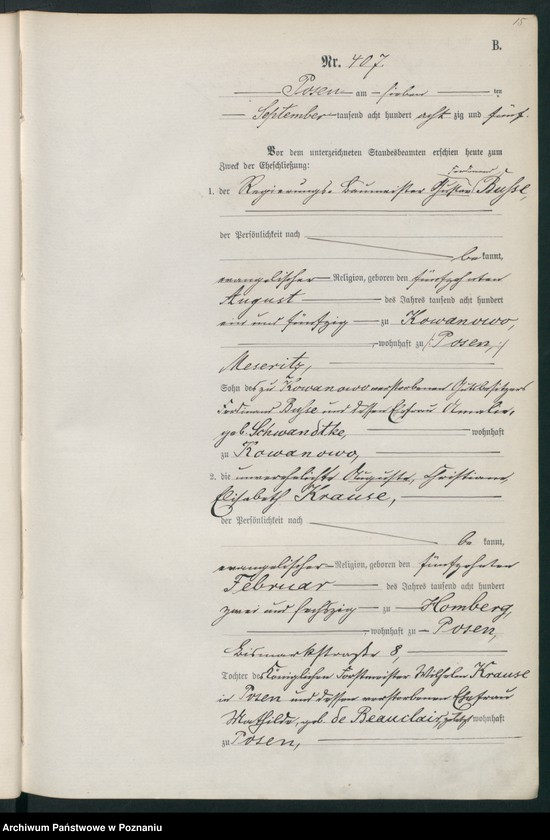 15
B.
Nr. 407.
Posen am sieben ten
September tausend acht hundert acht zig und fünf.
Vor dem unterzeichneten Standesbeamten erschien heute zum
Zweck der Eheschließung:
Ferdinand
1. der Regierungs-Baumeister Gustav Busse,
der Persönlichkeit nach
be kannt,
evangelischer Religion, geboren den fünfzehnten
August des Jahres tausend acht hundert
ein und fünfzig zu Kowanowo,
, wohnhaft zu Posen,
Meseritz,
Sohn des zu Kowanowo verstorbenen Gutsbesitzers
Ferdinand Busse und dessen Ehefrau Amalie,
geb. Schwandtke, wohnhaft
zu Kowanowo,
2. die unverehelichte Auguste, Christiane,
Elisabeth Krause,
der Persönlichkeit nach
be kannt,
evangelischer Religion, geboren den fünfzehnten
Februar des Jahres tausend acht hundert
zwei und sechszig zu Homberg,
, wohnhaft zu Posen,
Bismarkstraße 8,
Tochter des Königlichen Forstmeister Wilhelm Krause
in Posen und dessen verstorbenen Ehefrau
Mathilde, geb. de Beauclair, zuletzt wohnhaft
zu Posen,
Archiwum Państwowe w Poznaniu